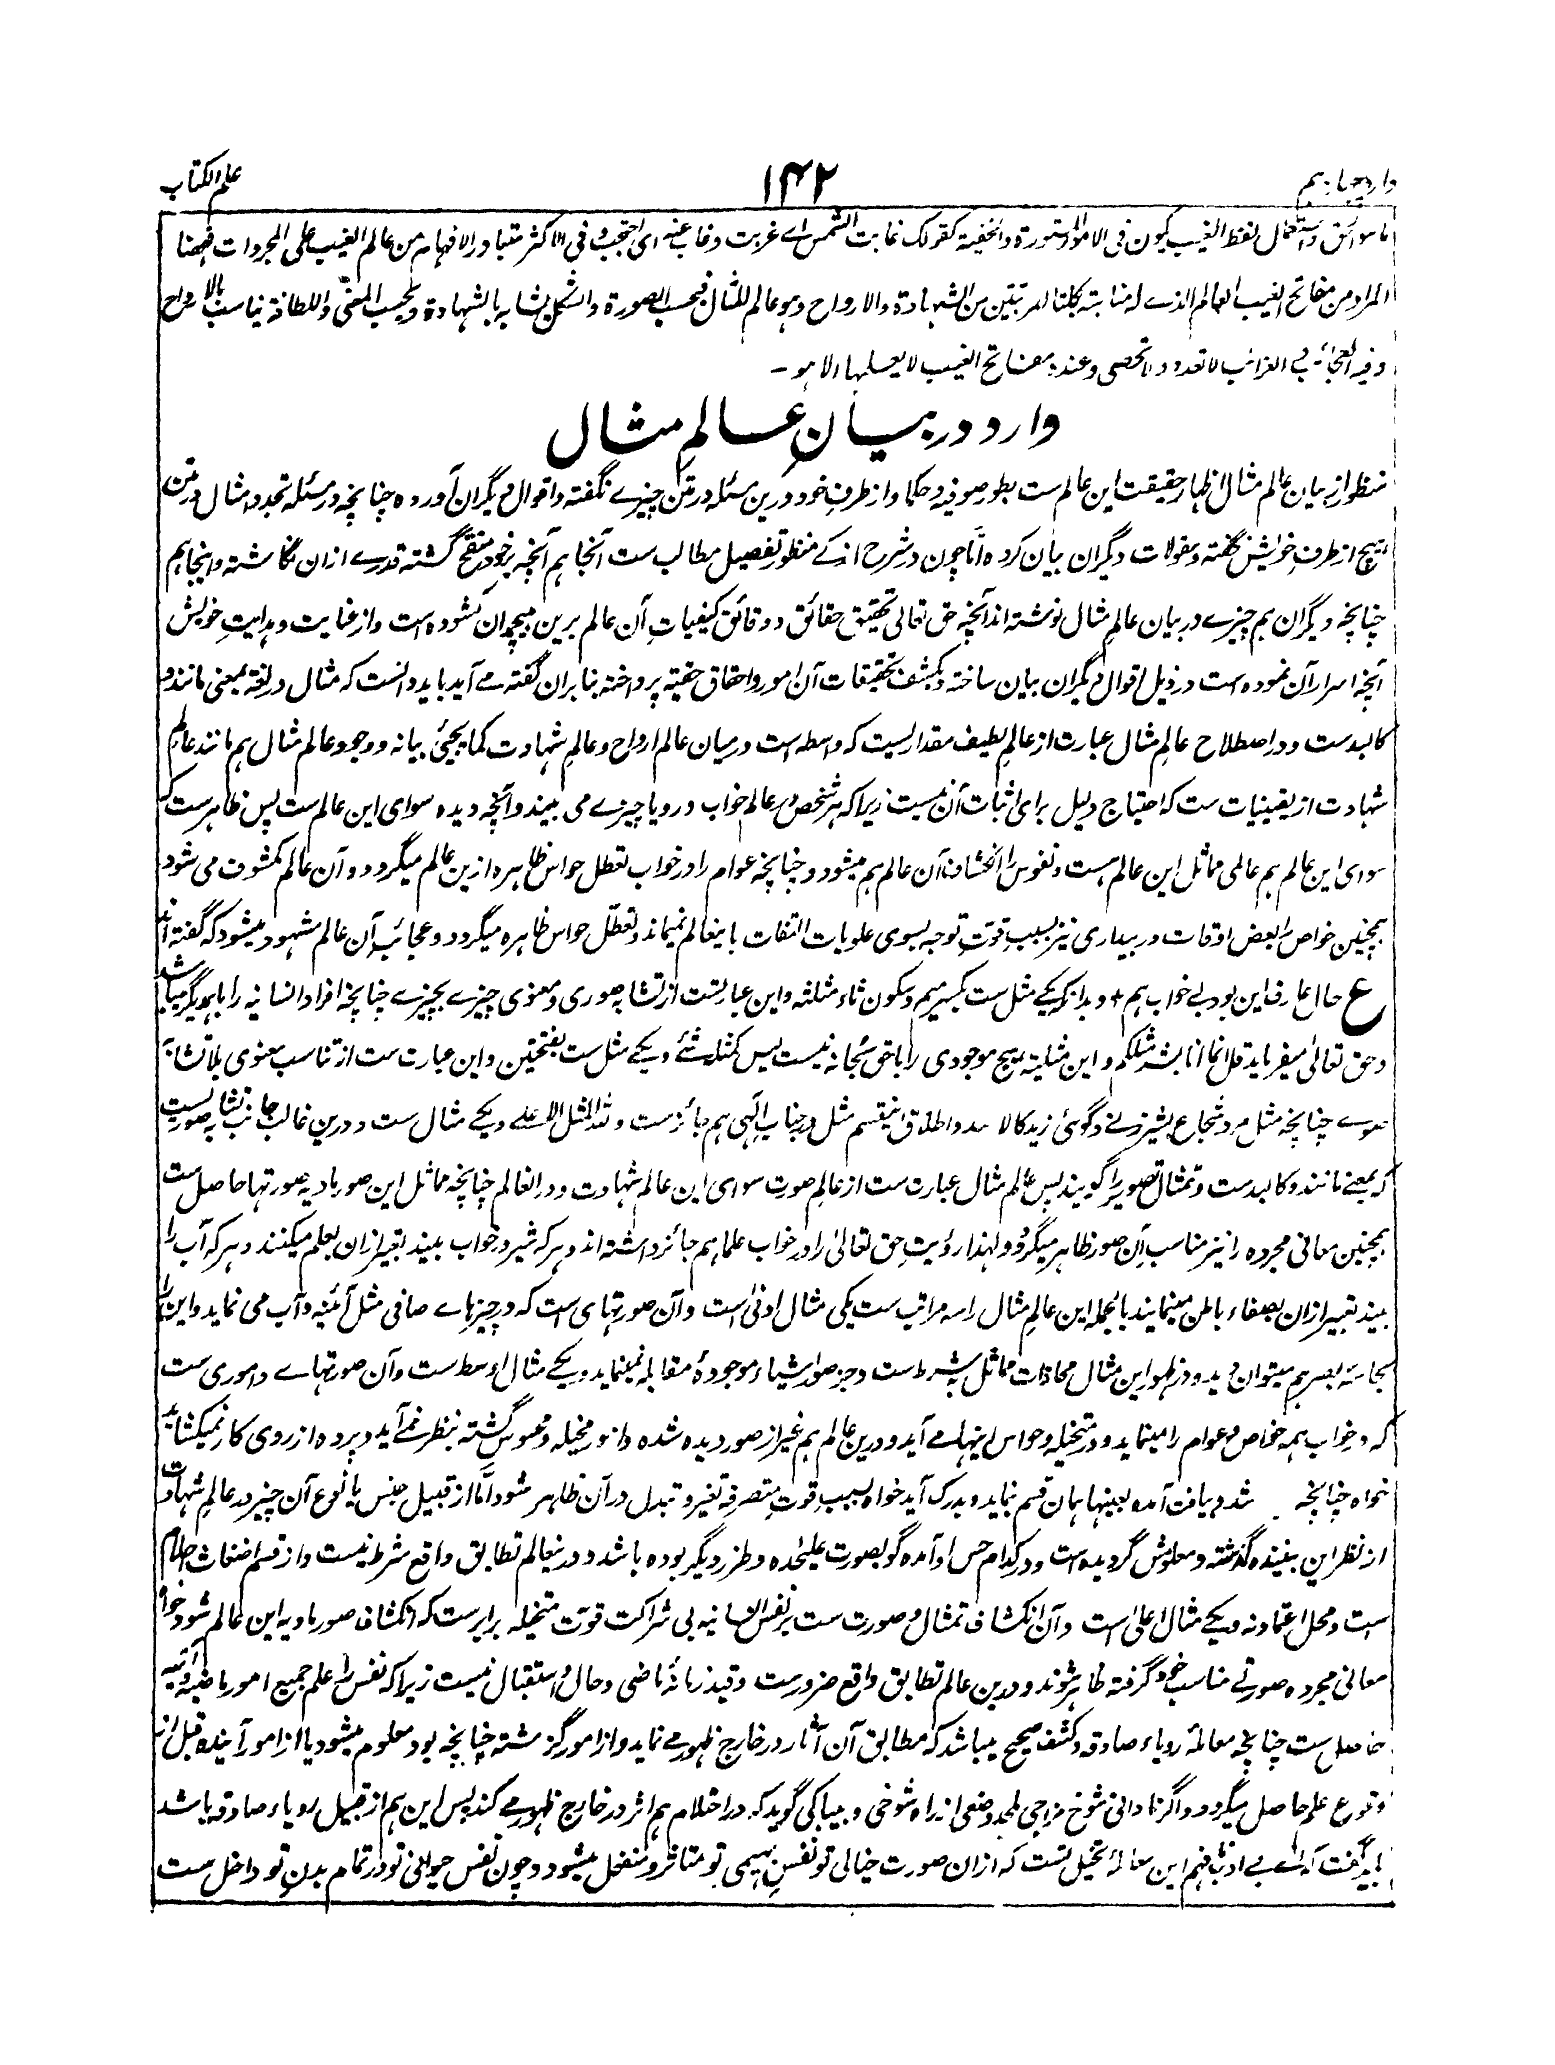 علم الکتاب
۱۴۲
وارد چهاردهم
ما سوا الحق واستعمال لفظ الغیب یکون فی الامور المستورة والخفیة کقولک غابت الشمس اے غربت وغاب عنه ای احتجب وفی الاکثر متبادر الافهام من عالم الغیب علی المجردات فههنا
المراد من مفاتح الغیب العالم الذے له مناسبة بکلتا المرتبتین من الشهادة والارواح وهو عالم المثال فبحسب الصورة والشکل یشابه بالشهادة وبحسب المعنی واللطافة یناسب بالارواح
وفیه العجائب والغرائب لا تعد ولا تحصی وعنده مفاتح الغیب لا یعلمها الا هو ـ
وارد در بیانِ عالمِ مثال
منظور از بیان عالم مثال اظهار حقیقت این عالم ست بطور صوفیه و حکما و از طرف خود درین مسئله در متن چیزے نگفته و اقوال دیگران آورده چنانچه در مسئله تجدد امثال در متن
هیچ از طرفِ خویش نگفته و مقولات دیگران بیان کرده اما چون در شرح اندکے منظور تفصیل مطالب ست آنجا هم آنچه بر خود منقح گشته قدرے ازان نگاشته و اینجا هم
چنانچه دیگران هم چیزے در بیان عالمِ مثال نوشته اند آنچه حق تعالی تحقیق حقائق و دقائق کیفیاتِ آن عالم برین هیچمدان کشوده است و از عنایت و هدایتِ خویش
آنچه اسرار آن نموده است در ذیل اقوال دیگران بیان ساخته و بکشف تحقیقات آن امور و احقاق حقیته پرداخته بنابران گفته مے آید باید دانست که مثال در لغة بمعنی مانند و
کالبدست و در اصطلاح عالمِ مثال عبارت از عالمِ لطیف مقداریست که واسطه است درمیان عالم ارواح و عالمِ شهادت کما یجیٔ بیانه و وجود عالم مثال هم مانند عالم
شهادت از یقینیات ست که احتیاج دلیل برای اثبات آن نیست زیرا که هر شخص در عالم خواب و رویا چیزے می بیند و آنچه دیده سوای این عالم ست پس ظاهر ست که
سوای این عالم هم عالمی مماثل این عالم هست و نفوس را انکشاف آن عالم هم میشود و چنانچه عوام را در خواب تعطل حواس ظاهره ازین عالم میگردد و آن عالم مکشوف می شود
همچنین خواص را بعض اوقات در بیداری نیز بسببِ قوت توجه بسوی علویات التفات باینعالم نمیماند و تعطل حواس ظاهره میگردد و عجائبِ آن عالم مشهود میشود که گفته اند
ع حال عارف این بود بے خواب هم + و بدانکه یکے مِثل ست بکسر میم و سکون ثاء مثلثه و این عبارتست از تشابه صوری و معنوی چیزے بچیزے چنانچه افراد انسانیه را باهمدیگر میباشد
و حق تعالٰی میفرماید قل انما انا بشر مثلکم و این مثلیته هیچ موجودی را باحق سبحانه نیست لیس کمثله شئے و یکے مثل ست بفتحتین و این عبارت ست از تناسب معنوی بلا تشابه
صورے چنانچه مثل مرد شجاع بشیر زنے و گوئی زید کالاسد و اطلاق اینقسم مثل در جنابِ الٰهی هم جائز ست و لله المثل الاعلے و یکے مثال ست و درین غالب جانب تشابه صوریست
که بمعنے مانند و کالبدست و تمثال تصویر را گویند پس عالم مثال عبارت ست از عالمِ صورت سوای این عالم شهادت و در انعالم چنانچه مماثل این صور مادیه صورتها حاصل ست
همچنین معانی مجرده را نیز مناسب آن صور ظاهر میگردد و لهذا رؤیتِ حق تعالیٰ را در خواب علما هم جائز داشته اند و هر که شیر در خواب بیند تعبیر ازان بعلم میکنند و هر که آب را
بیند تعبیر ازان بصفاء باطن مینمایند بالجمله این عالم مثال را سه مراتب ست یکی مثال ادنیٰ است و آن صورتهای است که در چیزهاے صافی مثل آئینه و آب می نماید و این را
بحاسّه بصر هم میتوان دید و در ظهور این مثال محاذات مماثل شرط ست و جز صور اشیاء موجودهٔ مقابله نمینماید و یکے مثال اوسط ست و آن صورتهاے و اموری ست
که در خواب همه خواص و عوام را مینماید و در متخیله و حواس اینها مے آید و درین عالم هم غیر از صور دیده شده و امور مخیله و محسوس گشته بنظر نمے آید و پرده از روی کار نمیکشاید
خواه چنانچه شد و یافت آمده بعینها همان قسم نماید و بدرک آید خواه بسبب قوتِ متصرفه تغیر و تبدل در آن ظاهر شود اما از قبیل جنس یا نوع آن چیز در عالم شهادت
از نظر این بیننده گذشته و معلومش گردیده است و در کدام حس او آمده گو بصورت علیٰحده و طرز دیگر بوده باشد و درینعالم تطابق واقع شرط نیست و از قسم اضغاث احلام
است و محل اعتماد نه و یکے مثال اعلیٰ است و آن انکشاف تمثال و صورت ست بر نفس انسانیه بی شراکت قوت متخیله برابرست که انکشاف صور مادیه این عالم شود خواه
معانی مجرده صورتے مناسب خود گرفته ظاهر شوند و درین عالم تطابق واقع ضرورست و قید زمانهٔ ماضی و حال و استقبال نیست زیرا که نفس را علم جمیع امور ماضیه و آتیه
حاصل ست چنانچه معاملهٔ رویاء صادقه و کشف صحیح میباشد که مطابق آن آثار در خارج ظهور مے نماید و از امور گزشته چنانچه بود معلوم میشود یا از امور آینده قبل از
وقوع علم حاصل میگردد و اگر نادانی شوخ مزاجی ملحد وضعی از راه شوخی و بیباکی گوید که در احتلام هم اثر در خارج ظهور مے کند پس این هم از قبیل رویاء صادقه باشد
باید گفت که اے بے ادب نافهم این معاملهٔ تخیل تست که ازان صورت خیالی تو نفسِ بهیمی تو متاثر و منفعل میشود و چون نفس حیوانی تو در تمام بدنِ تو داخل ست